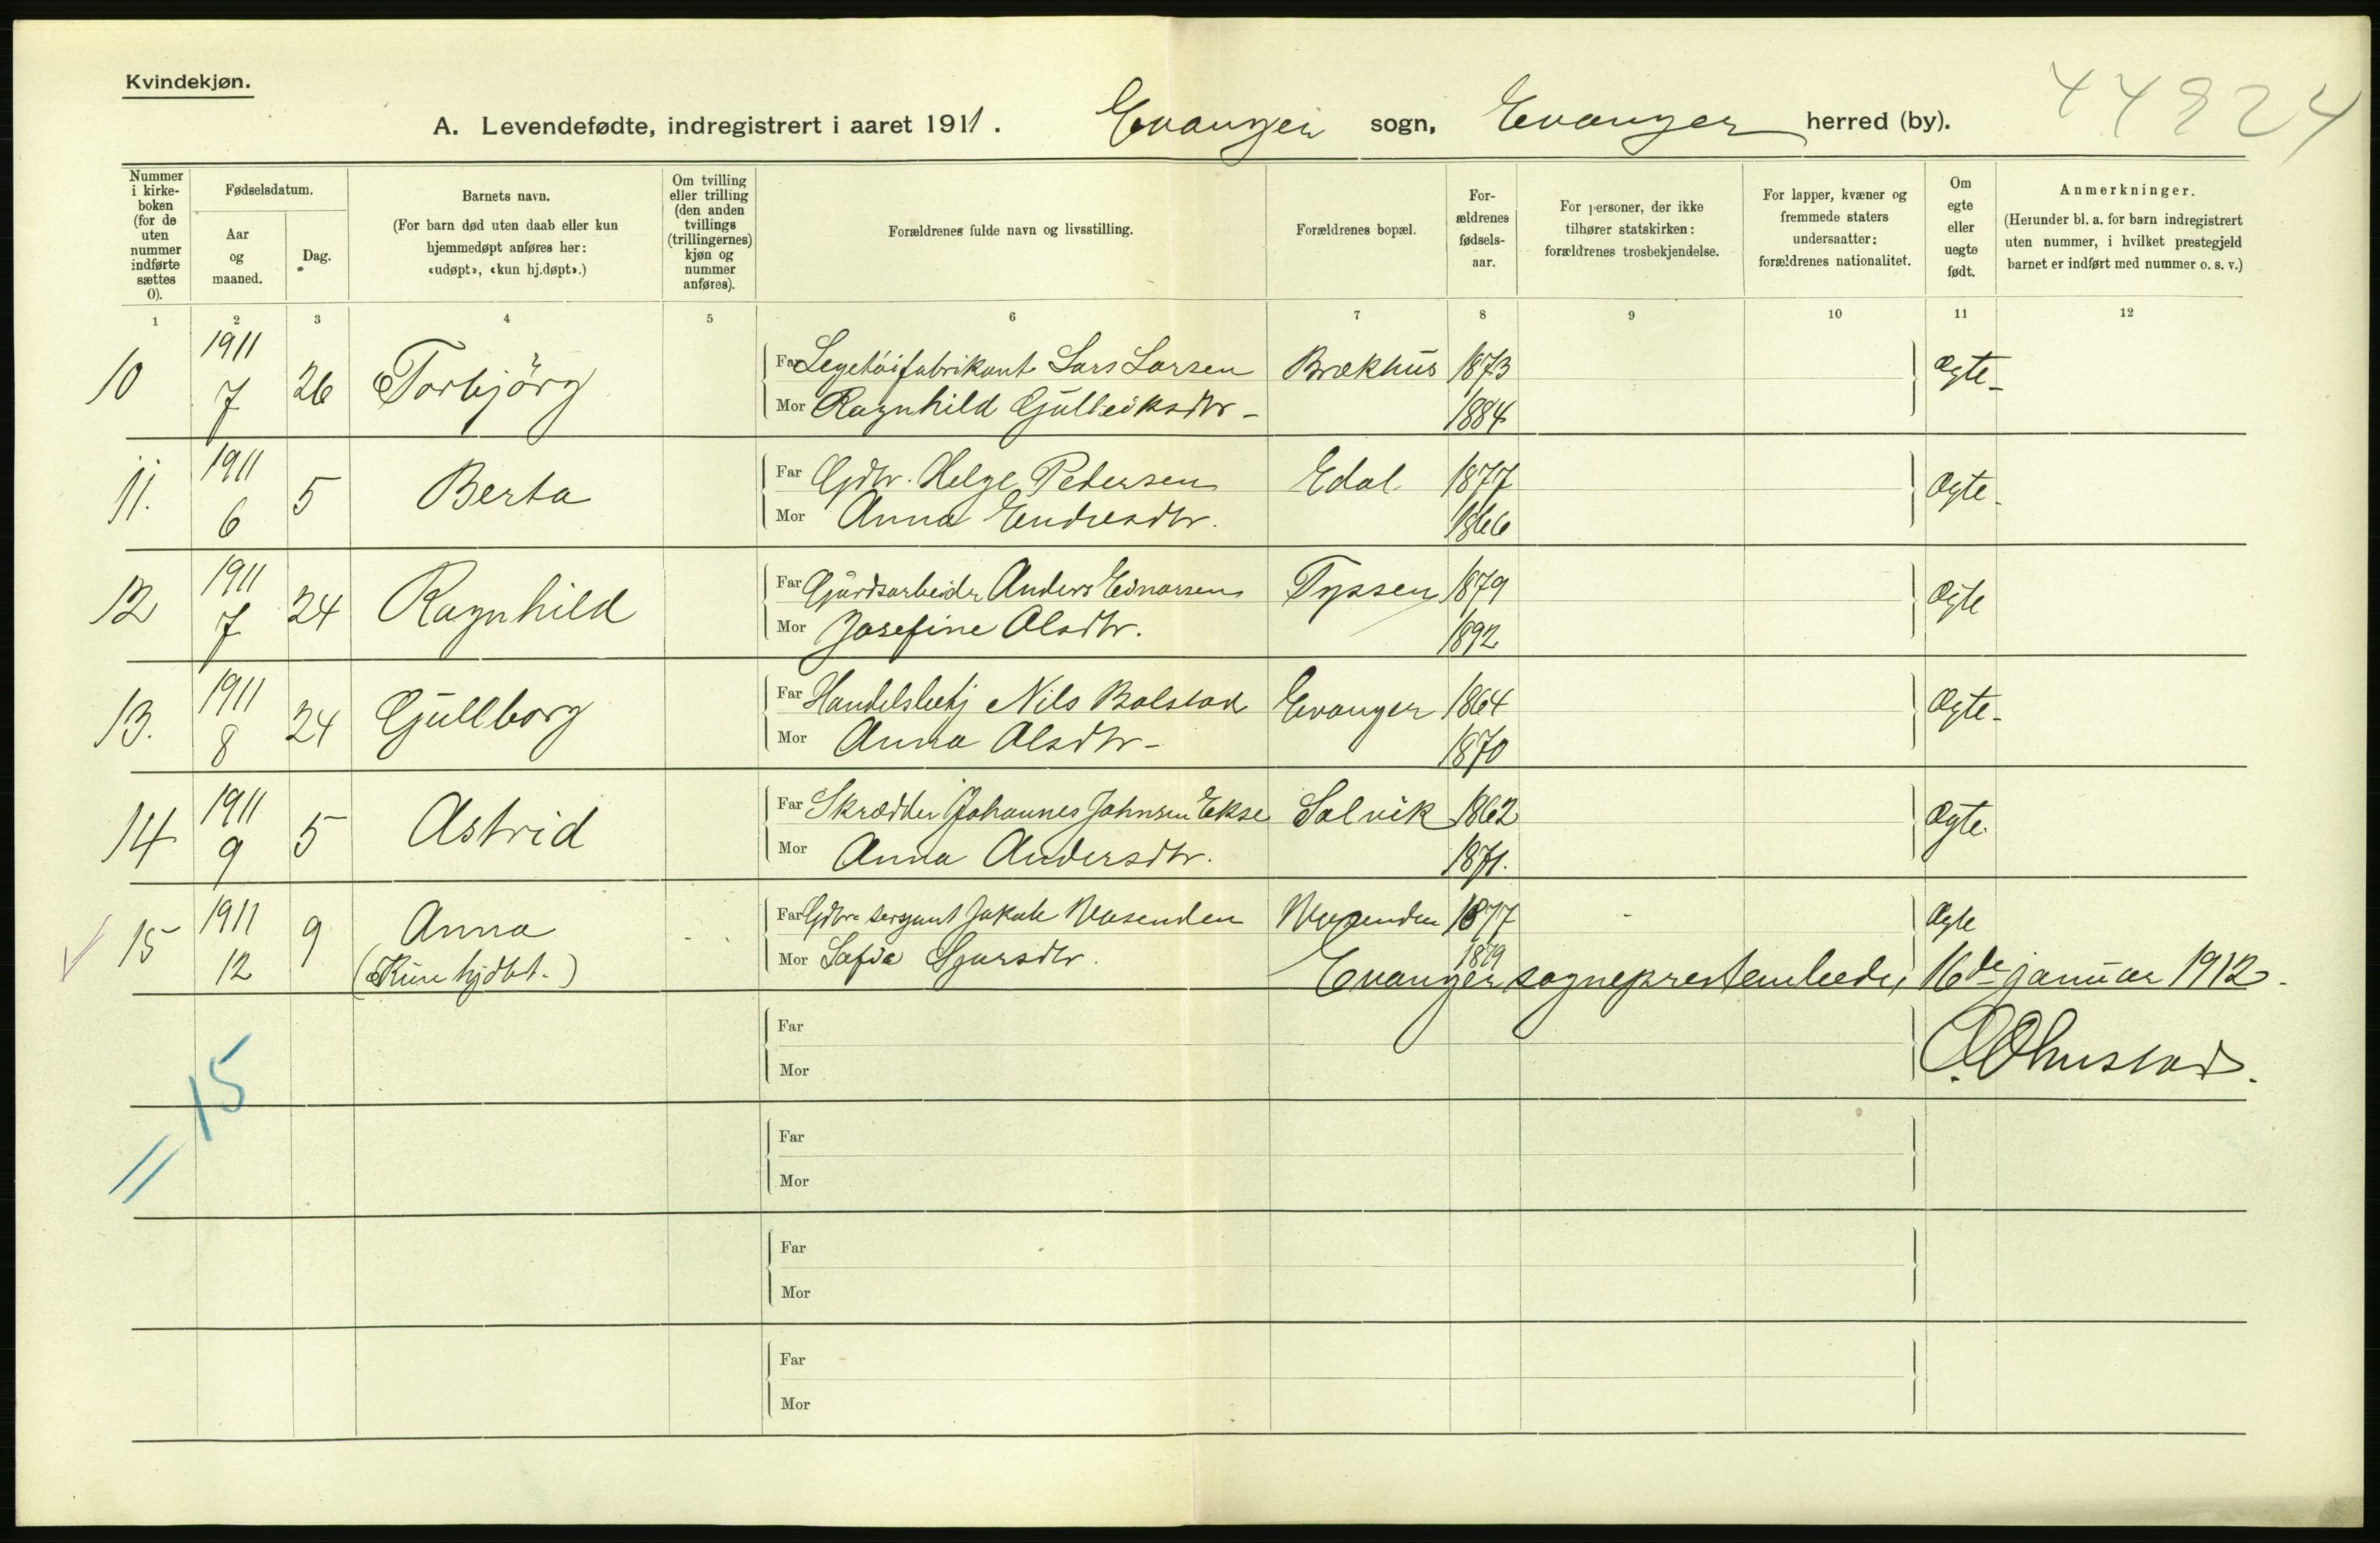 Kvindekjøn.
A. Levendefødte, indregistrert i aaret 1911. Evanger sogn, Evanger herred (by). 44824
Nummer i kirke-boken (for de uten nummer indførte sættes 0).
Fødselsdatum.
Aar og maaned.
Dag.
Barnets navn.
(For barn død uten daab eller kun hjemmedøpt anføres her: «udøpt», «kun hj.døpt».)
Om tvilling eller trilling (den anden tvillings (trillingernes) kjøn og nummer anføres).
Forældrenes fulde navn og livsstilling.
Forældrenes bopæl.
For-ældrenes fødsels-aar.
For personer, der ikke tilhører statskirken: forældrenes trosbekjendelse.
For lapper, kvæner og fremmede staters undersaatter: forældrenes nationalitet.
Om egte eller uegte født.
Anmerkninger.
(Herunder bl. a. for barn indregistrert uten nummer, i hvilket prestegjeld barnet er indført med nummer o. s. v.)
1 2 3 4 5 6 7 8 9 10 11 12
10 1911 7 26 Torbjörg Far Legetöifabrikant Lars Larsen Brækhus 1873 Ægte
Mor Ragnhild Gulleiksdtr 1884
11. 1911 6 5 Berta Far Gdbr. Helge Pedersen Edal 1877 Ægte
Mor Anna Endresdtr. 1866
12 1911 7 24 Ragnhild Far Gårdsarbeider Anders Einarsen Tyssen 1879 Ægte
Mor Josefine Olsdtr. 1892
13. 1911 8 24 Gullborg Far Handelsbetj Nils Bolstad Evanger 1864 Ægte
Mor Anna Olsdtr 1870
14 1911 9 5 Astrid Far Skrædder Johannes Johnsen Ekse Solvik 1862 Ægte
Mor Anna Andersdtr. 1871.
15 1911 12 9 Anna Far Gdbr. sersjant Jakob Mosenden Mosenden 1877 Ægte
(Kun hjdbt.) Mor Sofia 1879
Evanger sogneprestembede, 16de januar 1912.
Far
Mor
15
Far
Mor
Far
Mor
Far
Mor